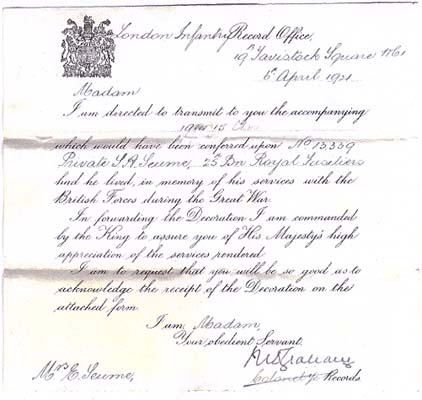 London Infantry Record Office,
19 Tavistock Square WC1
5th April 1921
Madam
I am directed to transmit to you the accompanying
1914/15 Star
which would have been conferred upon No 13339
Private S.A. Seume, 25th Bn Royal Fusiliers
had he lived, in memory of his services with the
British Forces during the Great War.
In forwarding the Decoration I am commanded
by the King to assure you of His Majesty's high
appreciation of the services rendered
I am to request that you will be so good as to
acknowledge the receipt of the Decoration on the
attached form.
I am, Madam,
Your obedient Servant,
Colonel i/c Records
Mrs E. Seume,